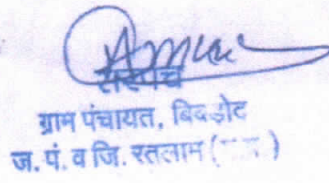 सरपंच
ग्राम पंचायत, बिबड़ोद
ज. पं. व जि. रतलाम (